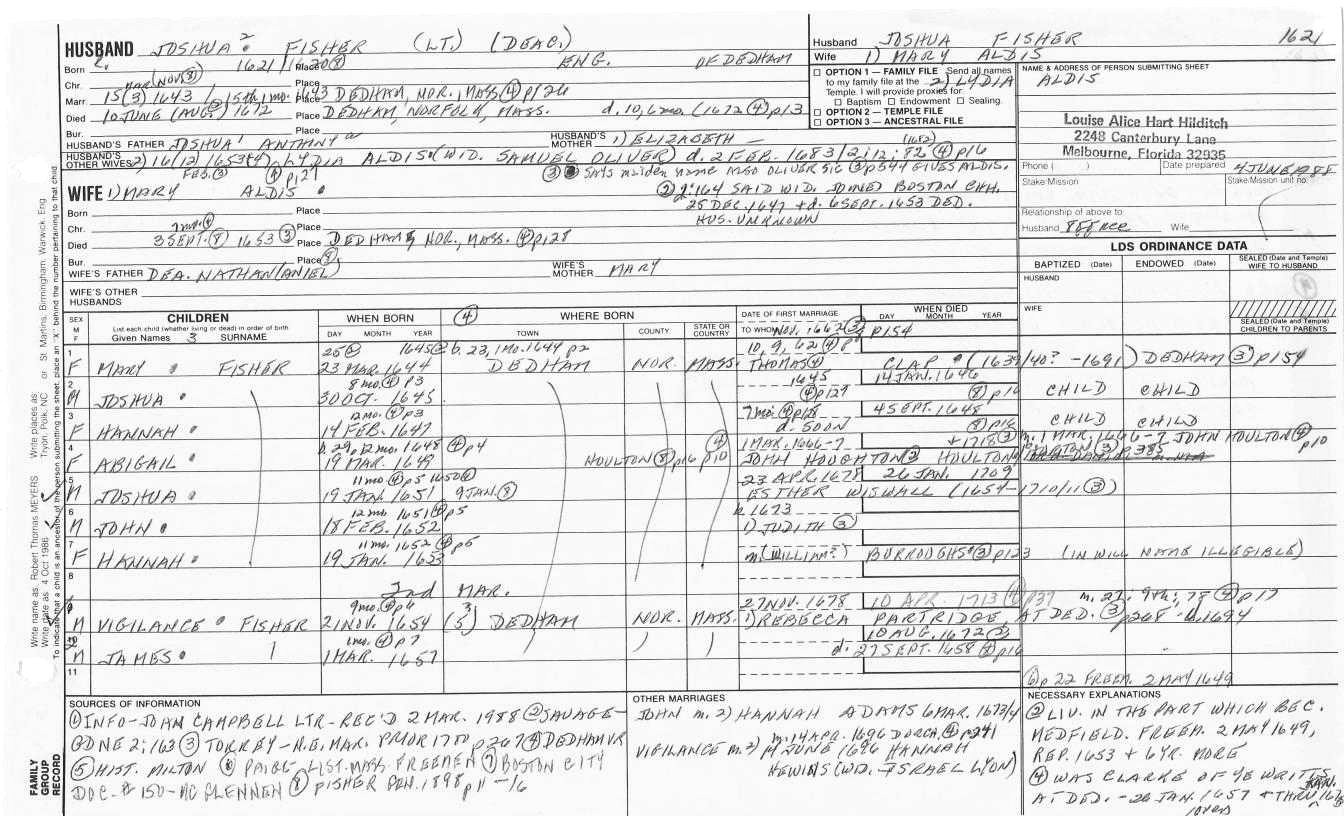 HUSBAND JOSHUA 2 FISHER (LT.) (DEAC.)
Husband JOSHUA FISHER 1621
Wife 1) MARY ALDIS
2) LYDIA ALDIS
Born 1621/1620 (8) Place ENG. OF DEDHAM
Chr. Place
MAR (NOV (8))
Marr. 15 (3) 1643 / 15th, 1 mo. 1643 Place DEDHAM, NOR., MASS (4) p126
Died 10 JUNE (AUG.) 1672 Place DEDHAM, NORFOLK, MASS. d. 10, 6 mo. (1672 (4) p13
Bur. Place
HUSBAND'S FATHER JOSHUA' ANTHONY
HUSBAND'S MOTHER 1) ELIZABETH —
HUSBAND'S OTHER WIVES 2) 16 (12) 1653 (4) LYDIA ALDIS (WID. SAMUEL OLIVER) d. 2 FEB. 1683/2; 12; 82 (4) p16
(1682)
FEB. (3) (4) p127
(3) SAYS maiden name MAY
WIFE 1) MARY ALDIS
(2) 2:164 SAID WID. JOINED BOSTON CHH.
25 DEC. 1647 + d. 6 SEPT. 1653 DED.
HUS. UNKNOWN
Born Place
Chr. Place
7 mo. (4)
Died 3 SEPT. (8) 1653 (3) Place DEDHAM, NOR., MASS. (4) p128
Bur. Place (8)
WIFE'S FATHER DEA. NATHAN(ANIEL)
WIFE'S MOTHER MARY
WIFE'S OTHER HUSBANDS
OPTION 1 — FAMILY FILE Send all names
to my family file at the
Temple. I will provide proxies for
Baptism Endowment Sealing.
OPTION 2 — TEMPLE FILE
OPTION 3 — ANCESTRAL FILE
NAME & ADDRESS OF PERSON SUBMITTING SHEET
Louise Alice Hart Hilditch
2248 Canterbury Lane
Melbourne, Florida 32935
Phone ( ) Date prepared 4 JUNE 1988
Stake/Mission Stake/Mission unit no.
Relationship of above to:
Husband Wife
LDS ORDINANCE DATA
BAPTIZED (Date) ENDOWED (Date) SEALED (Date and Temple) WIFE TO HUSBAND
HUSBAND
WIFE
SEALED (Date and Temple) CHILDREN TO PARENTS
SEX M F
CHILDREN
List each child (whether living or dead) in order of birth.
Given Names 3 SURNAME
WHEN BORN (4) WHERE BORN
DAY MONTH YEAR TOWN COUNTY STATE OR COUNTRY
DATE OF FIRST MARRIAGE
TO WHOM
WHEN DIED
DAY MONTH YEAR
NOV. 1662 (3) p154
25 (2) 1645 (2) b. 23, 1 mo. 1644 p2 10, 9, 62 (4) p
1 F MARY FISHER 23 MAR. 1644 DEDHAM NOR. MASS. THOMAS (4) CLAP (1639/40? -1691) DEDHAM (3) p154
8 mo. (4) p3 1645 14 JAN. 1646
2 M JOSHUA 30 OCT. 1645 (4) p127 (8) p16 CHILD CHILD
12 mo. (4) p3 4 SEPT. 1648
3 F HANNAH 14 FEB. 1647 d. SOON (8) p16 CHILD CHILD
b. 29, 12 mo. 1648 (4) p4 1 MAR. 1666-7 + 1718 (3) m. 1 MAR. 1666-7 JOHN HOULTON (4) p10
4 F ABIGAIL 19 MAR. 1649 HOULTON (8) p16 (4) p10 JOHN HOUGHTON (2) HOULTON
11 mo. (4) p5 1650 (4) 23 APR. 1678 26 JAN. 1709
5 M JOSHUA 19 JAN. 1651 9 JAN. (8) ESTHER WISWALL (1654-1710/11 (3))
12 mo. 1651 (4) p5 b 1673
6 M JOHN 18 FEB. 1652 1) JUDITH (3)
11 mo. 1652 (4) p5
7 F HANNAH 19 JAN. 1653 m. (WILLIAM?) BURROUGHS (3) p123 (IN WILL NAME ILLEGIBLE)
8
2nd MAR.
9 mo. (4) p6 27 NOV. 1678 10 APR. 1713 (4) p37 m. 27, 9th; 78 (4) p17
9 M VIGILANCE FISHER 21 NOV. 1654 (5) DEDHAM NOR. MASS. 1) REBECCA PARTRIDGE, AT DED. (3) p268 -b. 1694
1 mo. (4) p7 10 AUG. 1672 (2)
10 M JAMES 1 MAR. 1657 d. 27 SEPT. 1658 (4) p16
11
(6) p 22 FREEM. 2 MAY 1649
SOURCES OF INFORMATION
(1) INFO-JOAN CAMPBELL LTR-REC'D 2 MAR. 1988 (2) SAVAGE-
GDNE 2:163 (3) TORREY-N.E. MAR. PRIOR 1700 p267 (4) DEDHAM VR
(5) HIST. MILTON (6) PAIGE-LIST. MASS. FREEMEN (7) BOSTON CITY
DOC.# 150-MC GLENNEN (8) FISHER GEN. 1898 p11-16
OTHER MARRIAGES
JOHN m. 2) HANNAH ADAMS 6 MAR. 1673/4
m. 14 APR. 1696 DORCH. (4) p241
VIGILANCE m. 2) 14 JUNE 1696 HANNAH
HEWINS (WD. ISRAEL LYON)
NECESSARY EXPLANATIONS
(2) LIV. IN THE PART WHICH BEC.
MEDFIELD. FREEM. 2 MAY 1649,
REP. 1653 + 6 YR. MORE
(4) WAS CLARKE OF YE WRITTS
AT DED. - 28 JAN. 1657 + THRU JAN.
(over)
FAMILY GROUP RECORD
Write name as: Robert Thomas MEYERS Write places as: Tryon, Polk, NC or St. Martins, Birmingham, Warwick, Eng.
Write date as: 4 Oct 1986
To indicate that a child is an ancestor of the person submitting the sheet, place an "X" behind the number pertaining to that child.